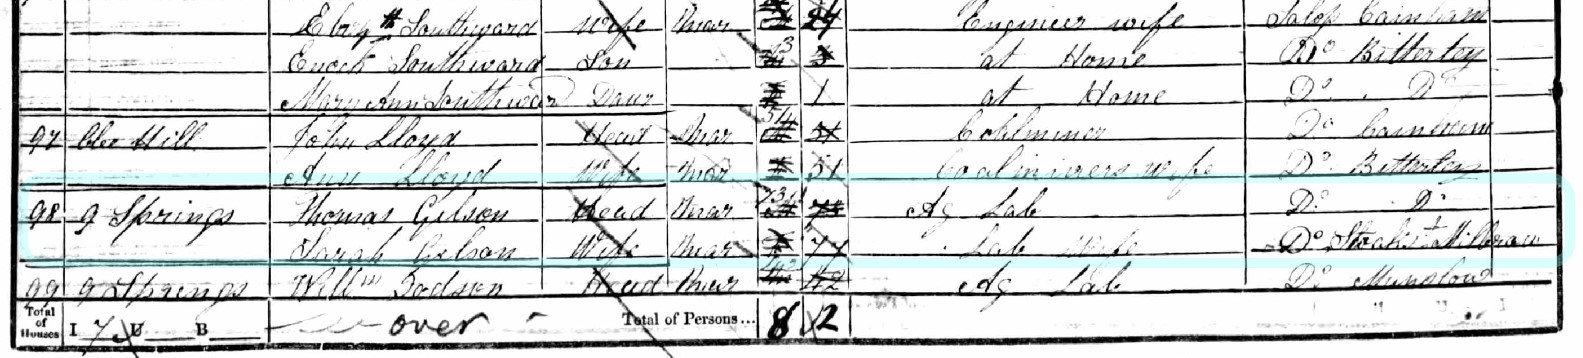 Southward Wife Mar 24 Engineer wife Salop Cainham
Enoch Southward Son 3 at Home Do Bitterley
Mary Ann Southward Daur 1 at Home Do Do
97 Clee Hill John Lloyd Head Mar 54 Coalminer Do Cainham
Ann Lloyd Wife Mar 51 Coalminers wife Do Bitterley
98 9 Springs Thomas Gilson Head Mar 73 Ag Lab Do Do
Sarah Gilson Wife Mar 77 Lab wife Do
99 9 Springs Willm Head Mar 42 Ag Lab Do Munslow
Total of Houses I 7 U B over Total of Persons... 8 12